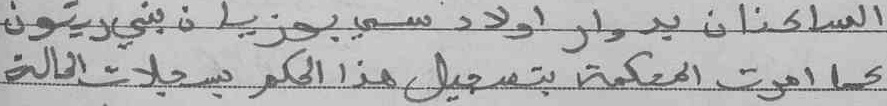 الساكنان بدوار اولاد سي بوزيان بني زيتون
كما امرت المحكمة بتسجيل هذا الحكم بسجلات الحالة